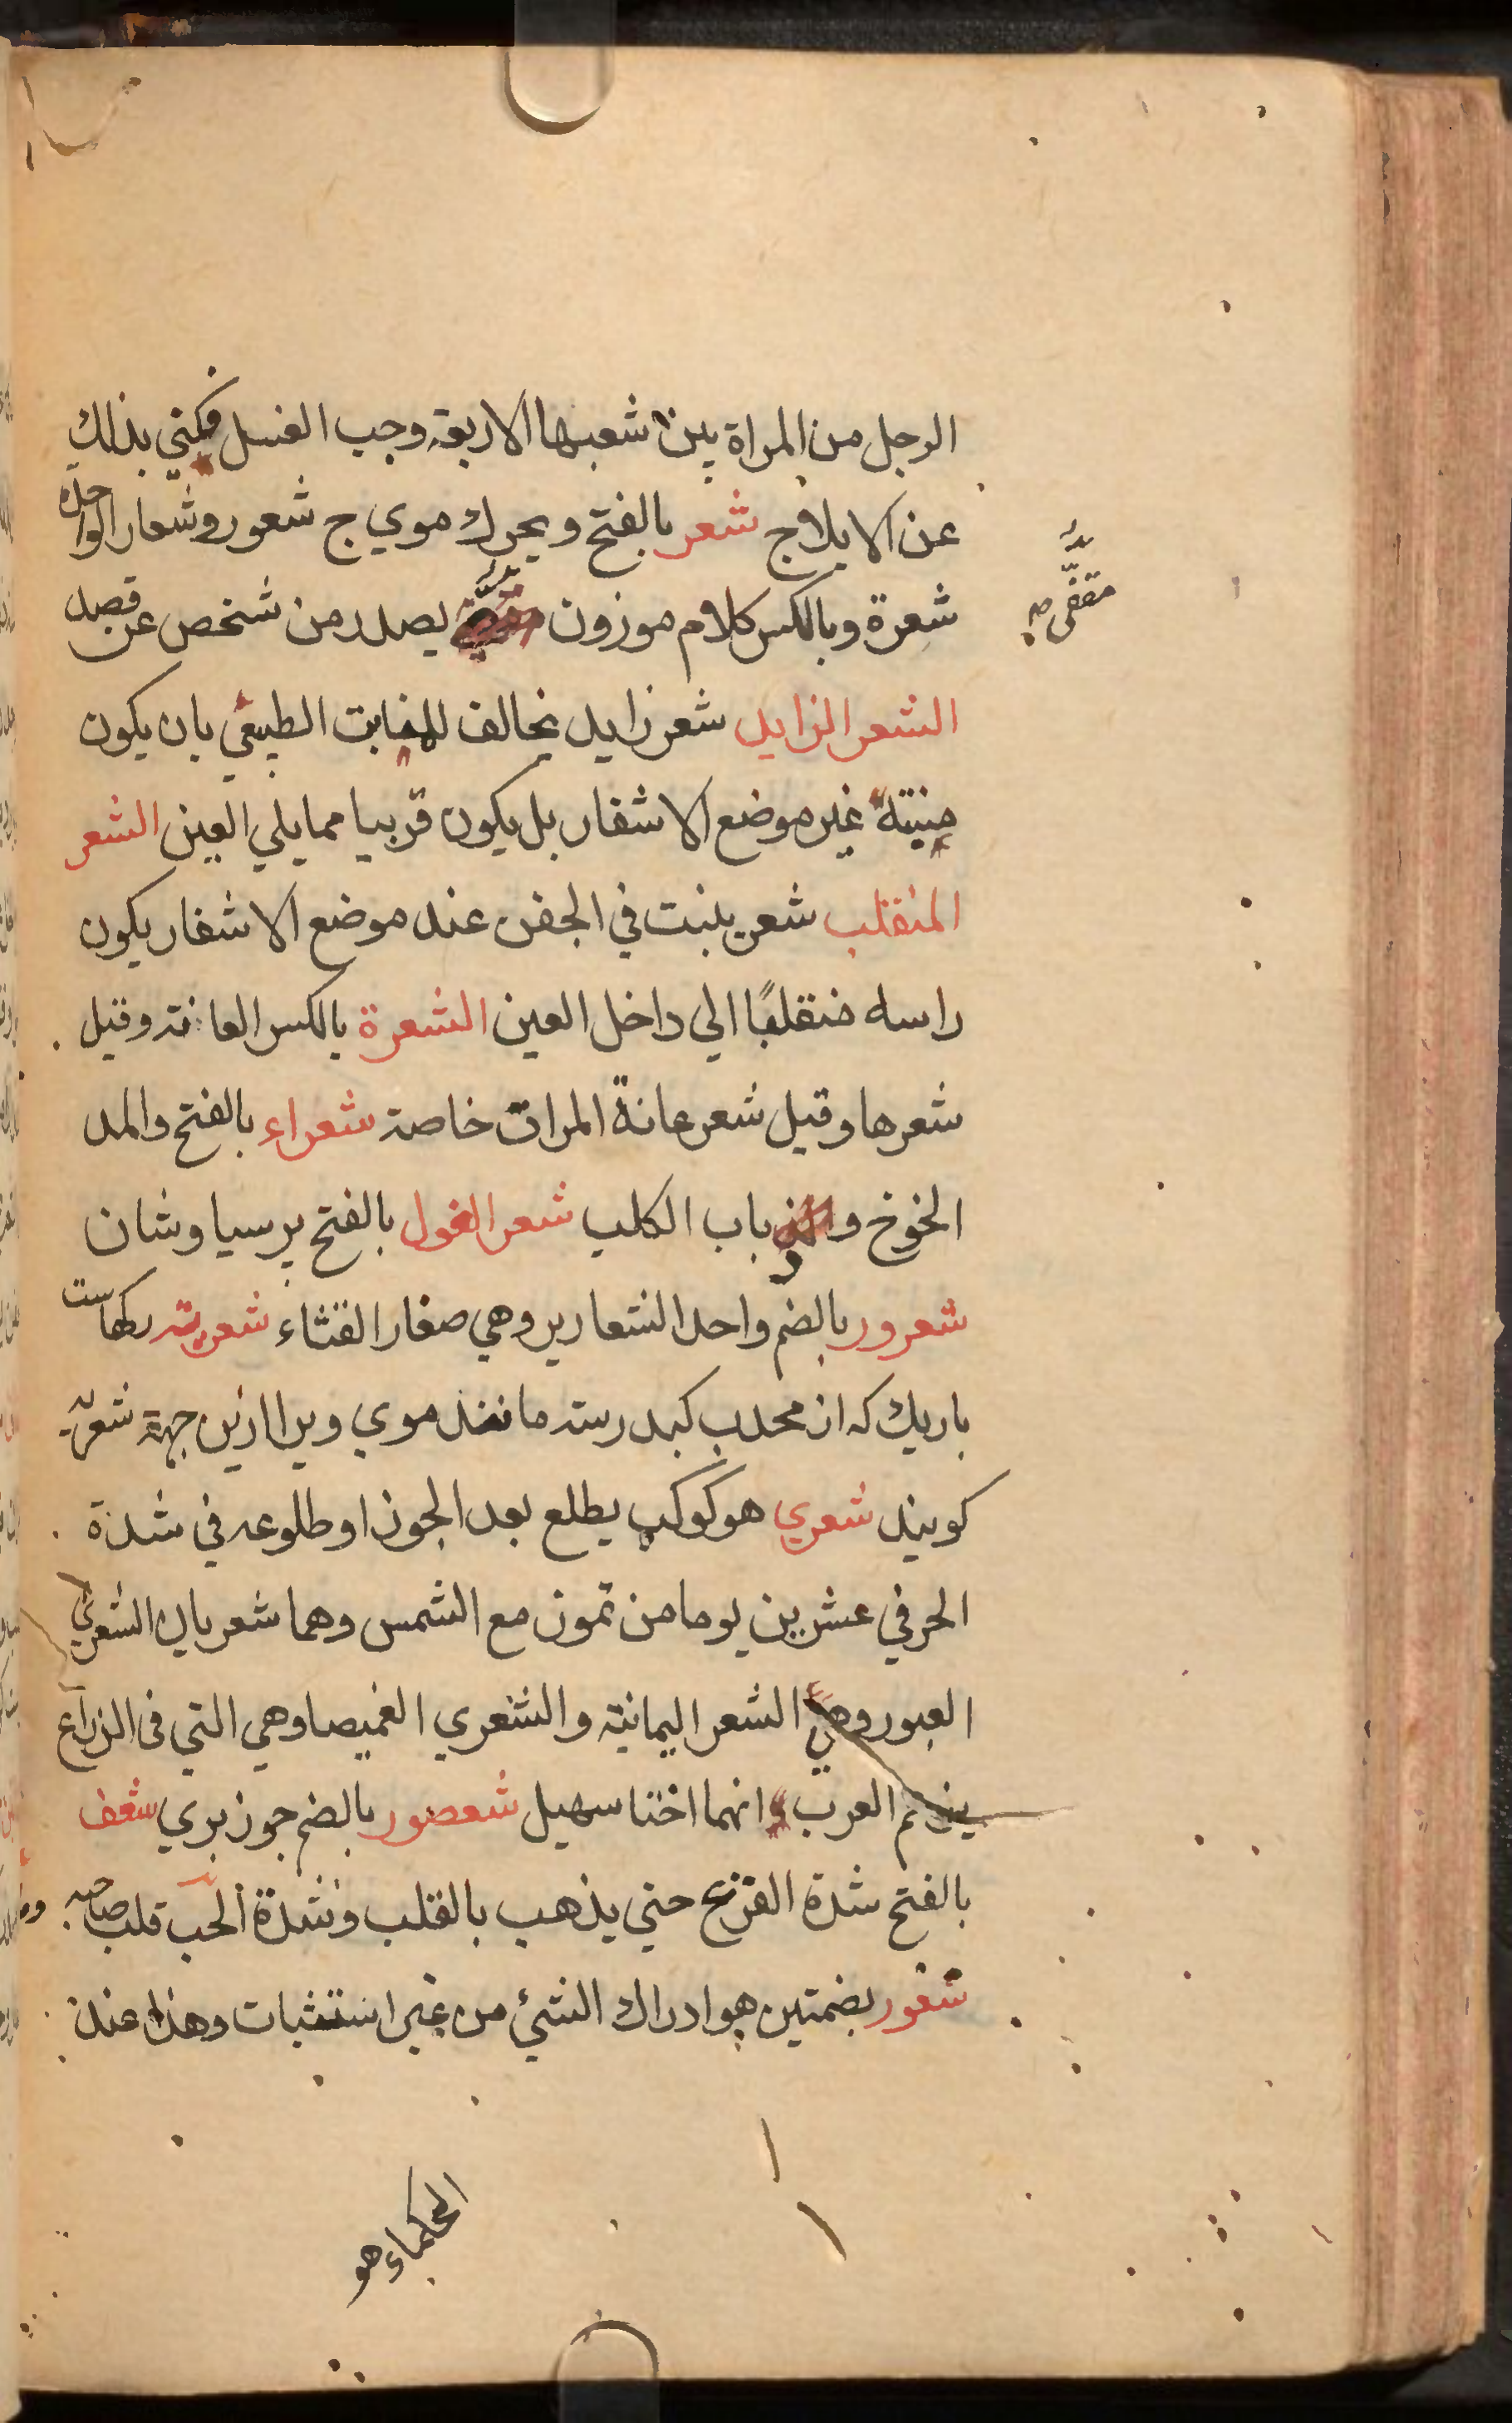 الرجل من المراة بين شعبها الاربعة وجب الغسل فكني بذلك
عن الايلاج شعر بالفتح ويحرك موي ج شعور وشعار الواحدة
شعرة وبالكسر كلام موزون يصدر من شخص عن قصد
مقفى صح
الشعر الزايد شعر زايد يخالف للنابت الطبيعي بان يكون
منبته غير موضع الاشفار بل يكون قريبا مما يلي العين الشعر
المنقلب شعر ينبت في الجفن عند موضع الاشفار يكون
راسه منقلبًا الي داخل العين الشعرة بالكسر العانة وقيل
شعرها وقيل شعر عانة المرات خاصة شعراء بالفتح والمد
الخوخ و ذباب الكلب شعر الغول بالفتح پرسياوشان
شعرور بالضم واحد الشعارير وهي صغار القثاء شعرية ركهاست
باريك كه از محدب كبد رسته مانند موي ويرا ازين جهة شعرية
كويند شعري هو كوكب يطلع بعد الجوزا وطلوعه في شدة
الحر في عشرين يوما من تموز مع الشمس وهما شعريان الشعري
العبور وهي الشعر اليمانية والشعري الغميصا وهي التي في الذراع
يزعم العرب انهما اختا سهيل شعصور بالضم جوز بري شعف
بالفتح شدة الفزع حتي يذهب بالقلب وشدة الحب قلب صاحبه
شعور بضمتين هو ادراك الشئ من غير استثبات وهذا عند
الحكماء هو